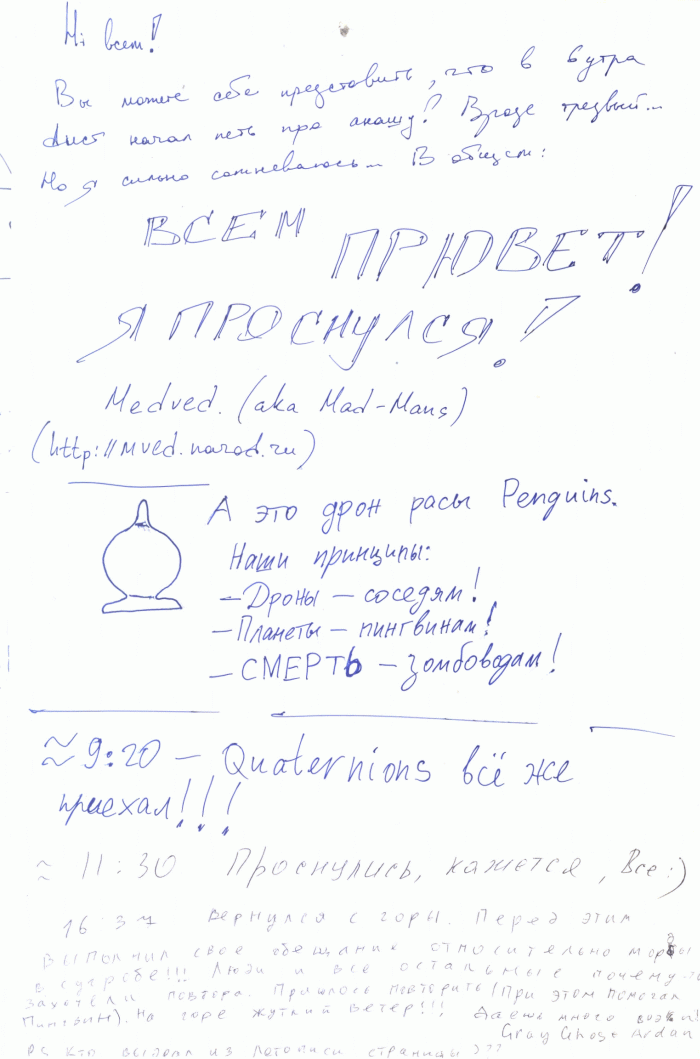 Hi всем!
Вы можете себе представить, что в 6 утра
Аист начал петь про анашу? Вроде трезвый...
Но я сильно сомневаюсь... В общем:
ВСЕМ
ПРЮВЕТ!
Я ПРОСНУЛСЯ!
Medved. (aka Mad-Mans)
(http://mved.narod.ru)
А это дрон расы Penguins.
Наши принципы:
– Дроны – соседям!
– Планеты – пингвинам!
– СМЕРТЬ – зомбоводам!
≈ 9:20 – Quaternions всё же
приехал!!!
≈ 11:30 Проснулись, кажется, Все:)
16 37 Вернулся с горы. Перед этим
выполнил свое обещание относительно морды
в сугробе!!! Люди и все остальные почему-то
захотели повтора. Пришлось повторить (При этом помогал
Пингвин). На горе жуткий ветер!!! Даешь много
Gray Ghost Ardan
PS Кто выдрал из Летописи страницы???